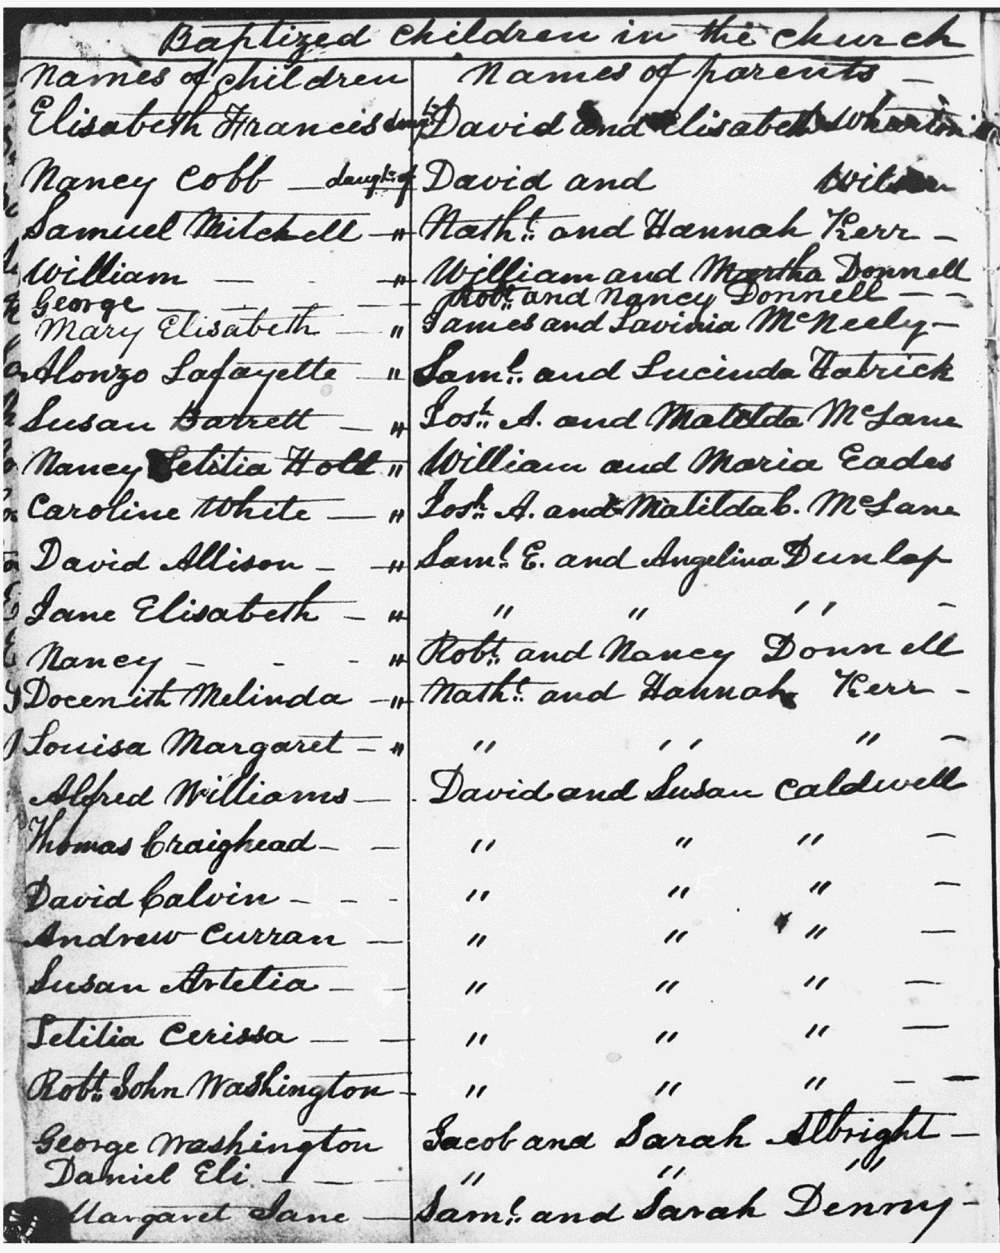 Baptized Children in the Church
Names of Children Names of parents —
Elisabeth Frances David and Elisabeth Wharton
Nancy Cobb — daugh. of David and Wilson
Samuel Mitchell — " Nath.l and Hannah Kerr —
William — - - " William and Martha Donnell
George — - - — Rob.t and Nancy Donnell — —
Mary Elisabeth — " James and Lavinia McNeely —
Alonzo Lafayette — " Sam.l and Lucinda Hatrick
Susan Barrett — " Jos.h A. and Matilda McLane
Nancy Letitia Holt " William and Maria Eades
Caroline White — " Jos.h A. and Matilda C. McLane
David Allison — " Sam.l E. and Angelina Dunlap
Jane Elisabeth — " " " " -
Nancy - - - " Rob.t and Nancy Donnell
Docenith Melinda — " Nath.l and Hannah Kerr -
Louisa Margaret — " " " " —
Alfred Williams — - David and Susan Caldwell
Thomas Craighead - — " " " —
David Calvin - - - " " " —
Andrew Curran — " " " —
Susan Artelia — - " " " —
Letitia Cerissa — — " " " —
Rob.t John Washington - " " " - —
George Washington Jacob and Sarah Albright —
Daniel Eli — - - " " "
Margaret Jane — Sam.l and Sarah Denny -